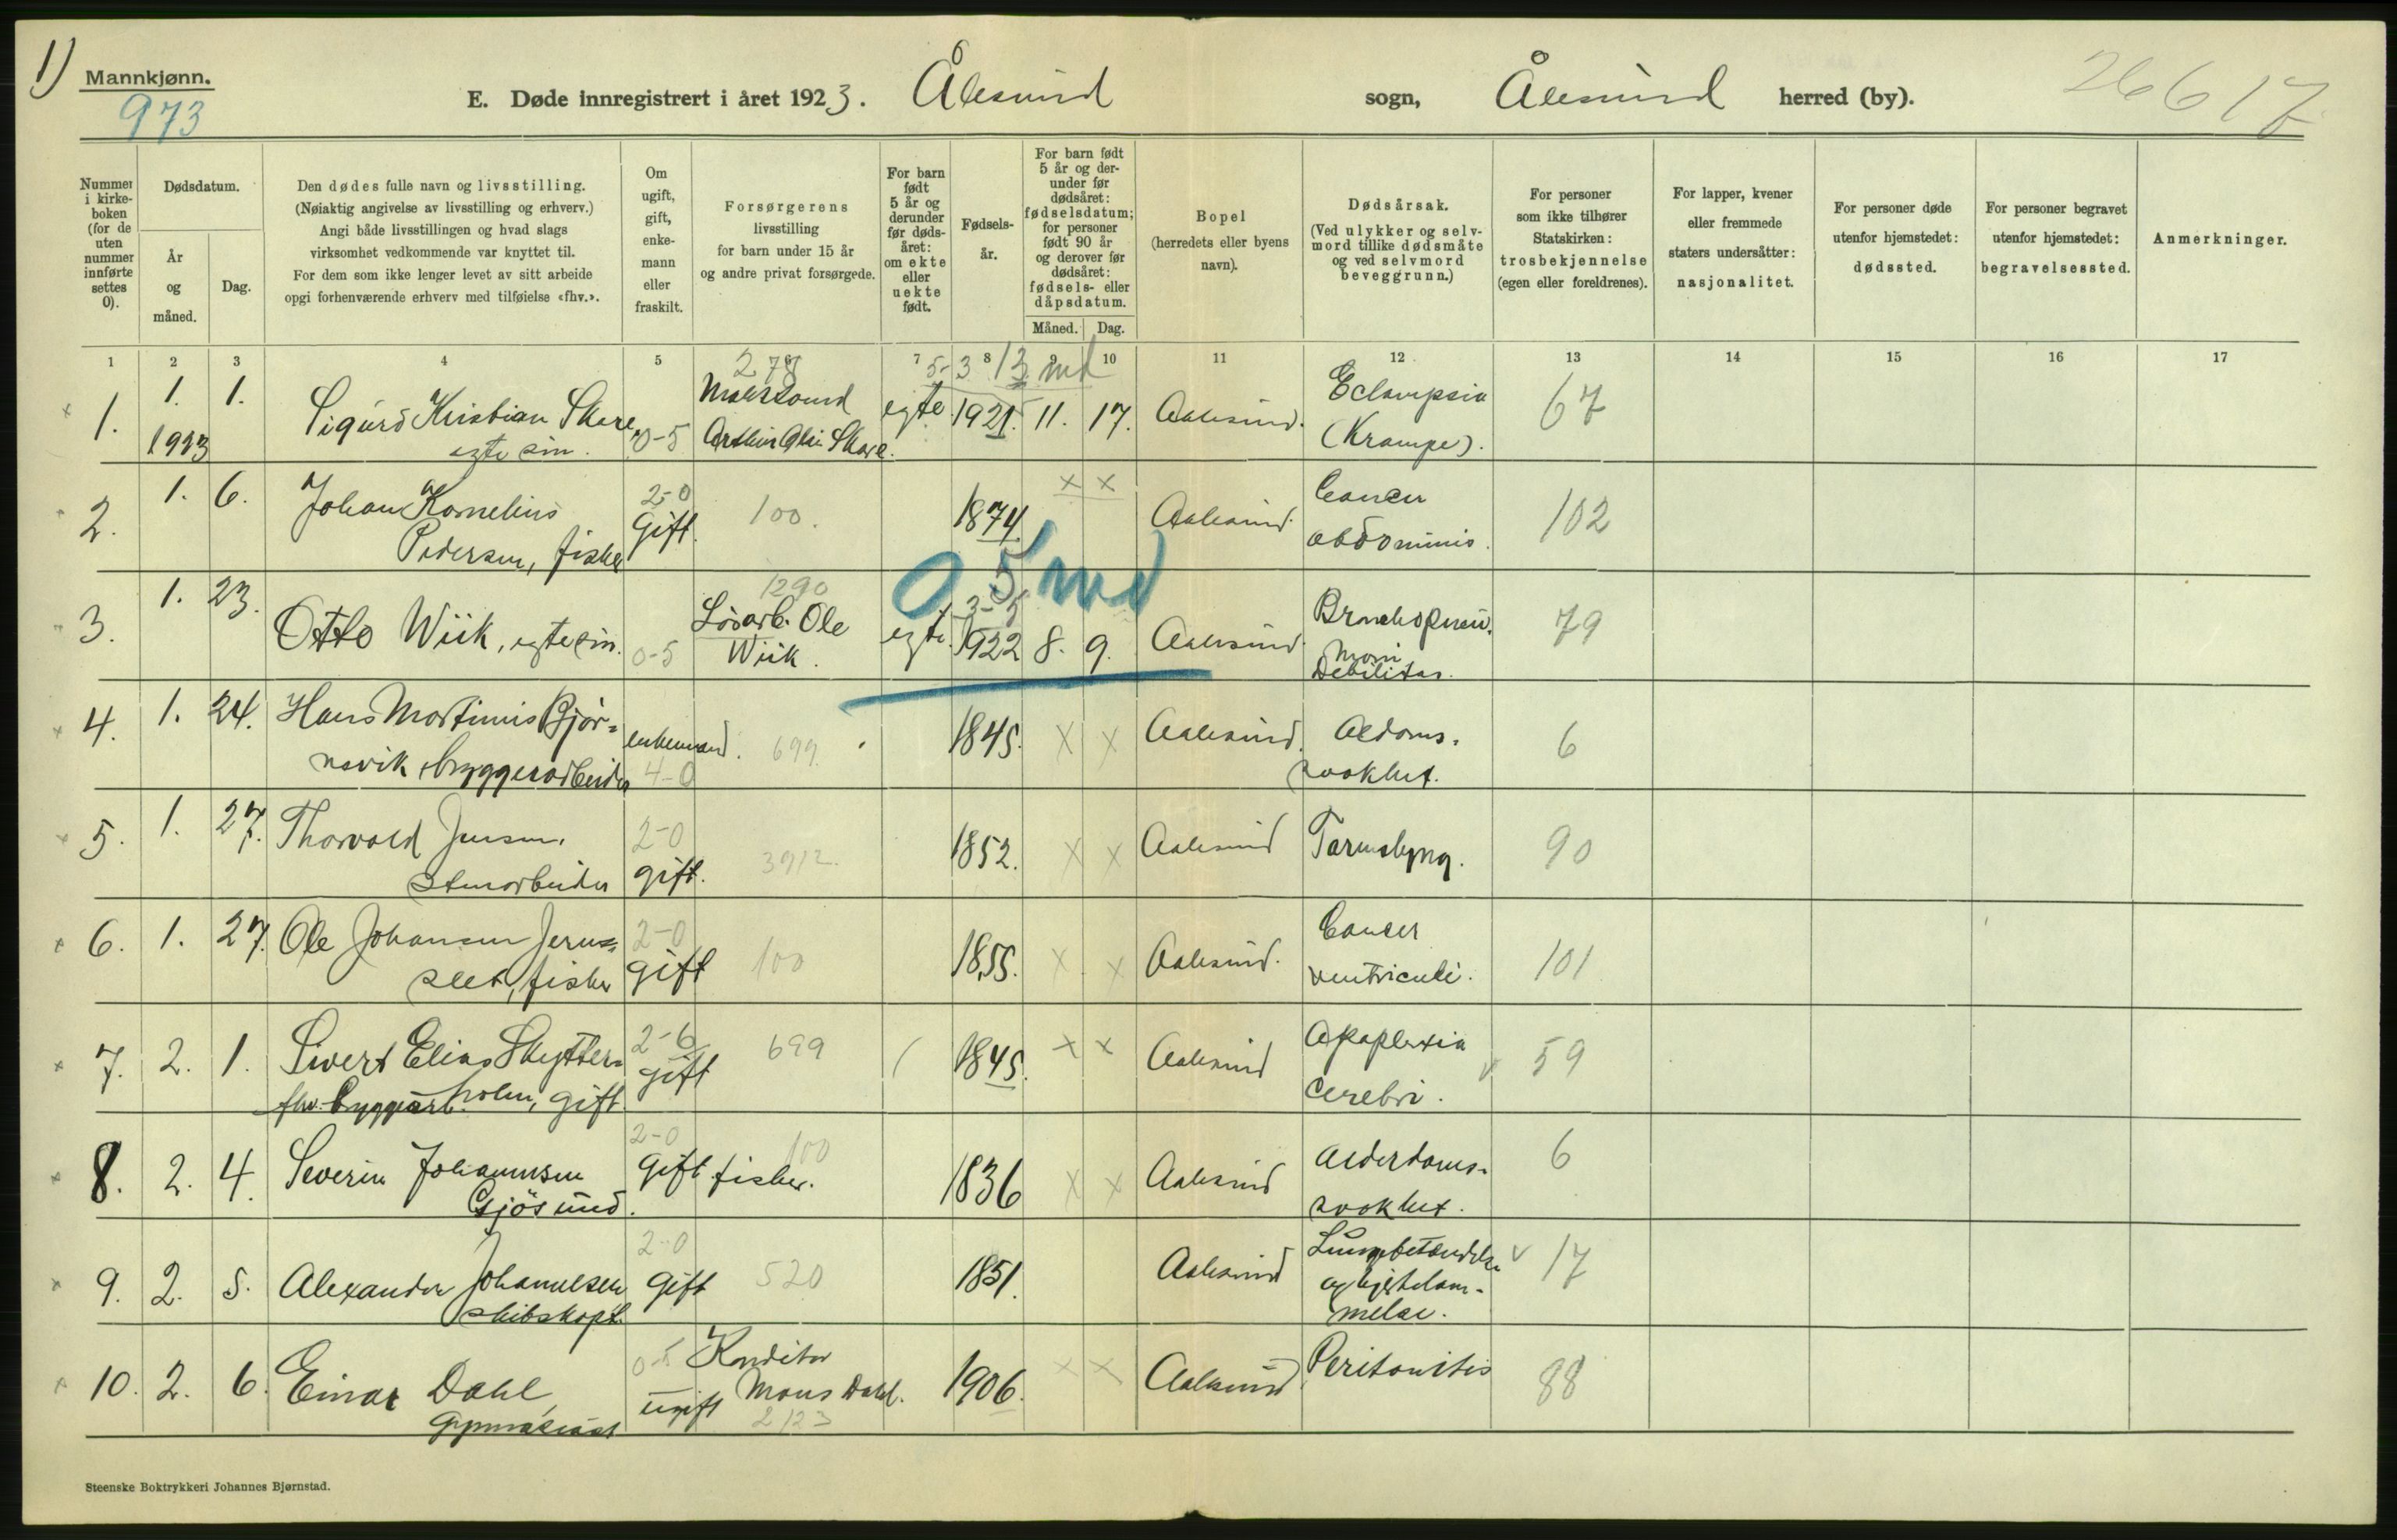 1)
Mannkjønn.
973
E. Døde innregistrert i året 1923. Ålesund sogn, Ålesund herred (by).
26617
Nummer i kirkeboken (for de uten nummer innførte settes 0).
Dødsdatum.
År og måned.
Dag.
Den dødes fulle navn og livsstilling.
(Nøiaktig angivelse av livsstilling og erhverv.)
Angi både livsstillingen og hvad slags
virksomhet vedkommende var knyttet til.
For dem som ikke lenger levet av sitt arbeide
opgi forhenværende erhverv med tilføielse «fhv.».
Om ugift, gift, enkemann eller fraskilt.
Forsørgerens
livsstilling
for barn under 15 år
og andre privat forsørgede.
For barn født 5 år og derunder før dødsåret: om ekte eller uekte født.
Fødselsår.
For barn født 5 år og derunder før dødsåret: fødselsdatum; for personer født 90 år og derover før dødsåret: fødsels- eller dåpsdatum.
Måned. Dag.
Bopel
(herredets eller byens
navn).
Dødsårsak.
(Ved ulykker og selvmord tillike dødsmåte
og ved selvmord
beveggrunn.)
For personer
som ikke tilhører
Statskirken:
trosbekjennelse
(egen eller foreldrenes).
For lapper, kvener
eller fremmede
staters undersåtter:
nasjonalitet.
For personer døde
utenfor hjemstedet:
dødssted.
For personer begravet
utenfor hjemstedet:
begravelsessted.
Anmerkninger.
1 2 3 4 5 6 7 8 9 10 11 12 13 14 15 16 17
278 5-3 13 md
1. 1. 1. 1923 Sigurd Kristian Skare, egte søn. 0-5 Skare. egte. 1921. 11. 17. Aalesund. Eclampsia (Krampe). 67
2. 1. 6. Johan Kornelius Pedersen, fisker 2-0 Gift. 100. 1874. x x Aalesund. Cancer abdominis. 102
0 5 md
3. 1. 23. Otto Wiik, egte søn. 0-5 1290 Løsarb. Ole Wiik. egte. 3-5 1922 8. 9. Aalesund. Bronchopneumoni Debilitas. 79
4. 1. 24. Hans Martinus Bjørnevik, bryggearbeider enkemand. 4-0 699. 1845. x x Aalesund. Alderdomssvakhet. 6
5. 1. 27. Thorvald Jensen, stenarbeider 2-0 gift. 3912. 1852. x x Aalesund Tarmslyng. 90
6. 1. 27. Ole Johansen fisker 2-0 gift 100 1855. x x Aalesund. Cancer ventriculi. 101
7. 2. 1. Sivert Elias Skytterholm, gift. fhv. bryggearb. 2-6 gift 699 1845. x x Aalesund Apoplexia cerebri. v 59
8. 2. 4. Severin Johannesen Gjøsund. 2-0 Gift 100 fisker. 1836 x x Aalesund Alderdomssvakhet. 6
9. 2. 5. Alexander Johannesen skibskapt. 2-0 Gift 520 1851. Aalesund Lungebetændelse og hjertelammelse. v 17
10. 2. 6. Einar Dahl, Gymnasiast 0-5 ugift Konditor Mons Dahl. 2123 1906. x x Aalesund Peritonitis 88
Steenske Boktrykkeri Johannes Bjørnstad.